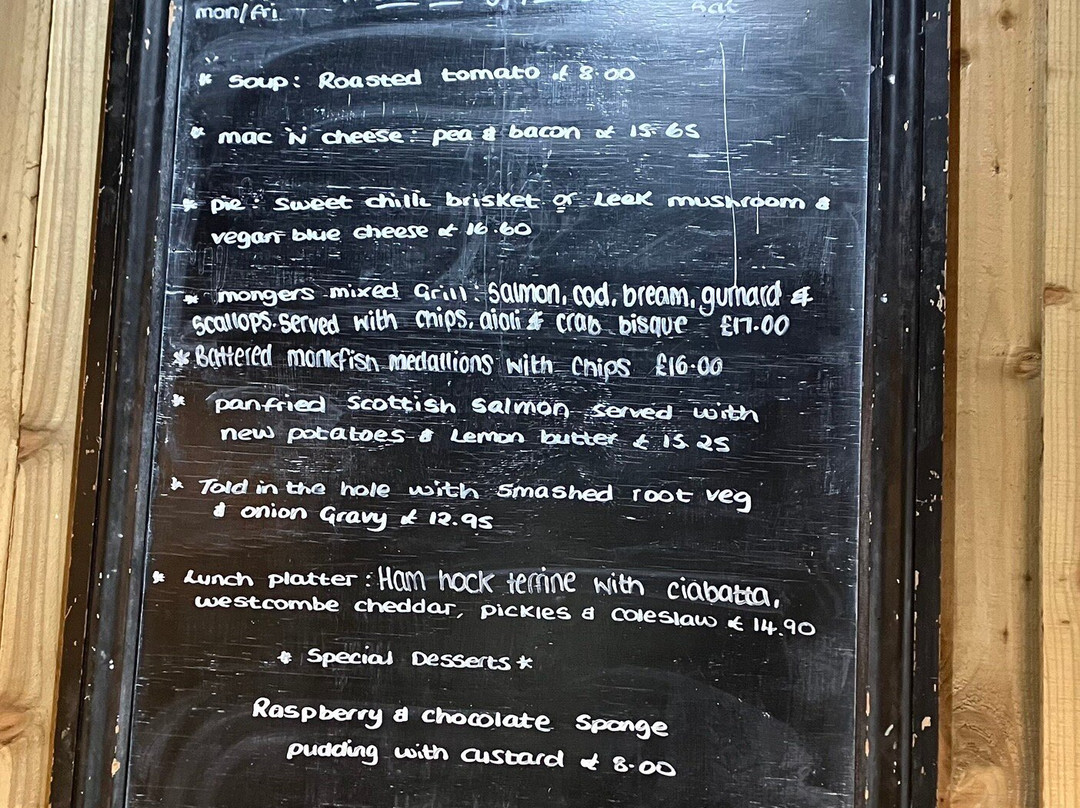 mon/fri
Sat
* Soup: Roasted tomato £8.00
* mac 'N' cheese: pea & bacon £15.65
* pie: sweet chilli brisket or Leek mushroom &
vegan blue cheese £16.60
* mongers mixed Grill: Salmon, cod, bream, gurnard &
scallops. served with chips, aioli & crab bisque £17.00
* Battered monkfish medallions with chips £16.00
* panfried Scottish Salmon served with
new potatoes & Lemon butter £15.25
* Toad in the hole with smashed root veg
& onion Gravy £12.95
* Lunch platter: Ham hock terrine with ciabatta,
westcombe cheddar, pickles & coleslaw £14.90
* Special Desserts *
Raspberry & chocolate Sponge
pudding with custard £8.00